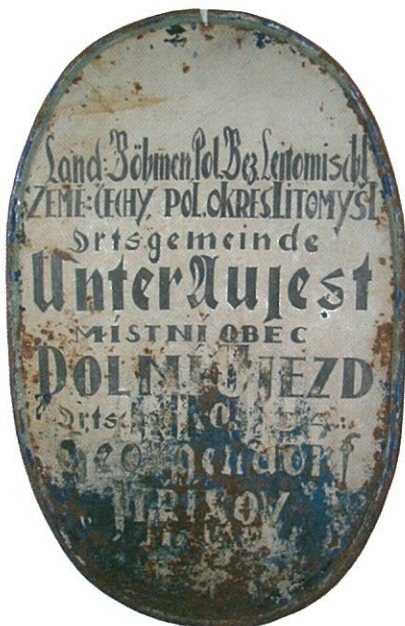 Land: Böhmen, Pol. Bez. Leitomischl
ZEMĚ: ČECHY, POL. OKRES LITOMYŠL
Ortsgemeinde
Unter Aujest
MÍSTNÍ OBEC
DOLNÍ ÚJEZD
JIŘIKOV